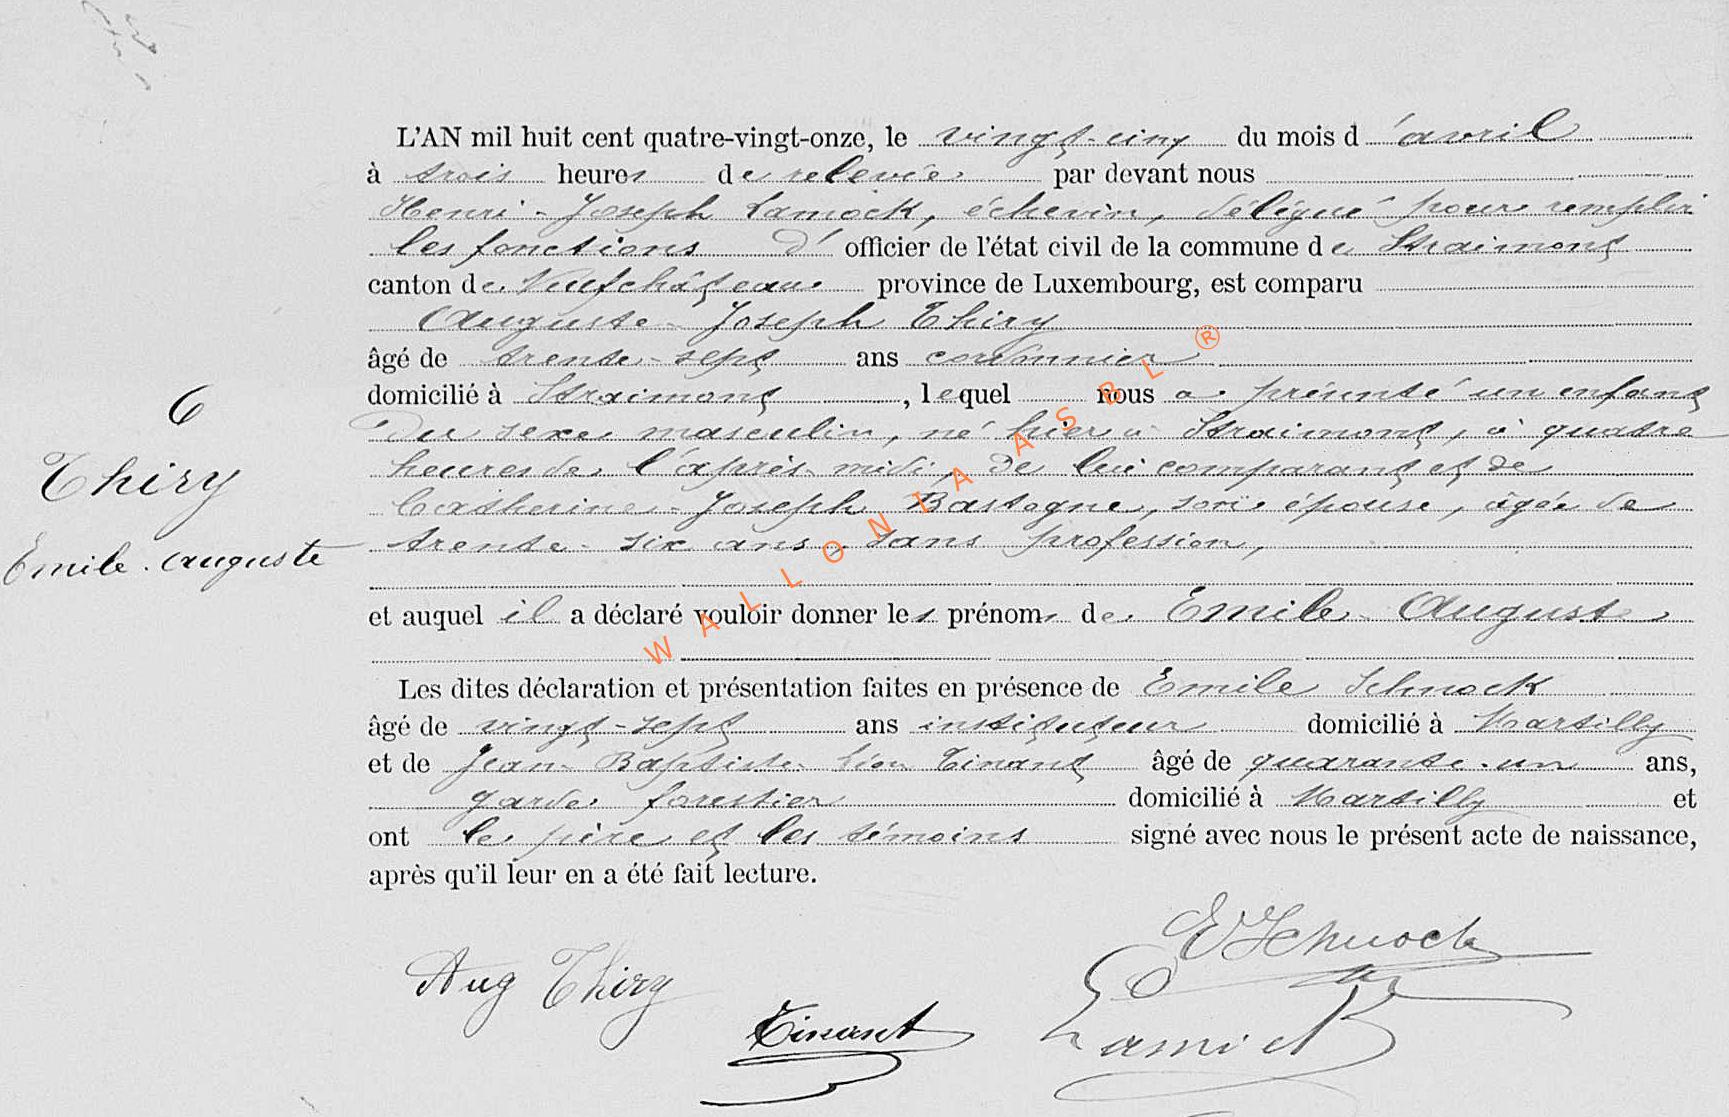 L'AN mil huit cent quatre-vingt-onze, le vingt-cinq du mois d'avril
à trois heures de relevée par devant nous
Henri-Joseph Lamock, échevin, délégué pour remplir
les fonctions d'officier de l'état civil de la commune de Straimont
canton de Neufchâteau province de Luxembourg, est comparu
Auguste-Joseph Thiry
âgé de trente-sept ans cordonnier
domicilié à Straimont, lequel nous a présenté un enfant
Du sexe masculin, né hier à Straimont, à quatre
heures de l'après-midi, de lui comparant et de
Catherine-Joseph Bastogne, son épouse, âgée de
trente-six ans, sans profession,
et auquel il a déclaré vouloir donner les prénoms de Emile-August
Les dites déclaration et présentation faites en présence de Emile Schnock
âgé de vingt-sept ans instituteur domicilié à Martilly
et de Jean-Baptiste-Léon Tinant âgé de quarante-un ans,
garde forestier domicilié à Martilly et
ont le père et les témoins signé avec nous le présent acte de naissance,
après qu'il leur en a été fait lecture.
6
Thiry
Emile. Auguste
E Schnock
Aug Thiry
Tinant
WALLONIA ASBL ®